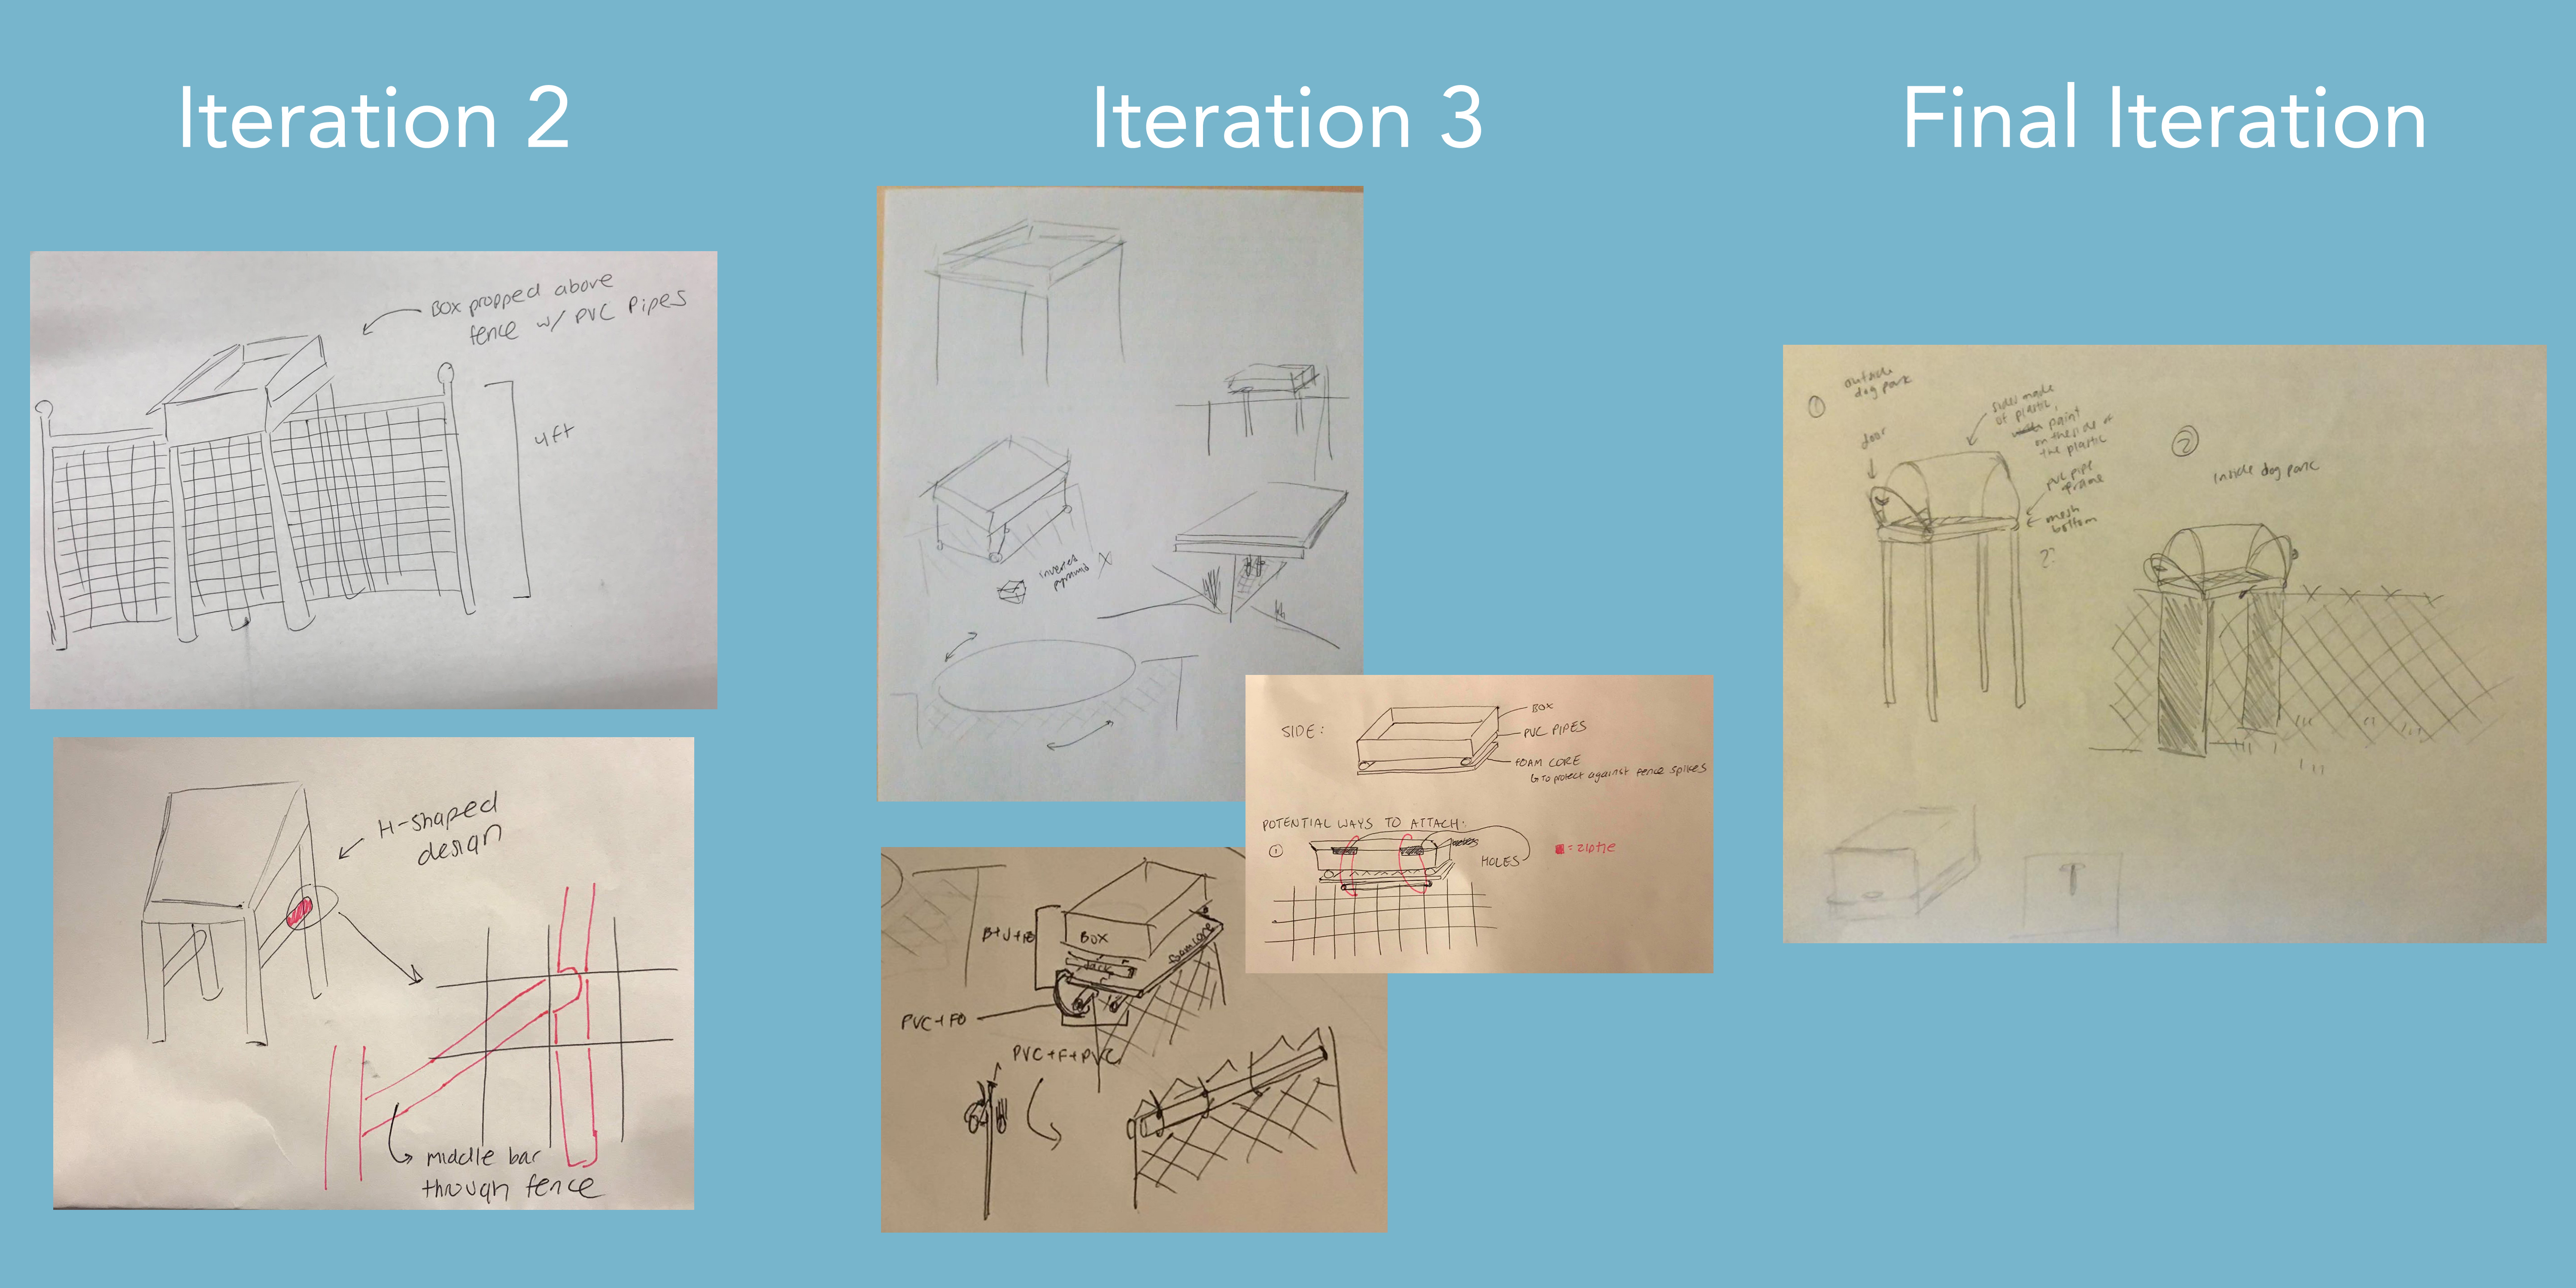 Iteration 2
Box propped above
fence w/ PVC Pipes
4ft
H-shaped
design
middle bar
through fence
Iteration 3
inverted
pyramid X
SIDE:
BOX
PVC PIPES
FOAM CORE
↳ to protect against fence spikes
POTENTIAL WAYS TO ATTACH:
①
HOLES
= ziptie
BOX
Jack
foam core
PVC+F+PVC
Final Iteration
①
outside
dog park
door
sides made
of plastic,
paint
on the side of
the plastic
PVC pipe
frame
mesh
bottom
??
②
Inside dog park